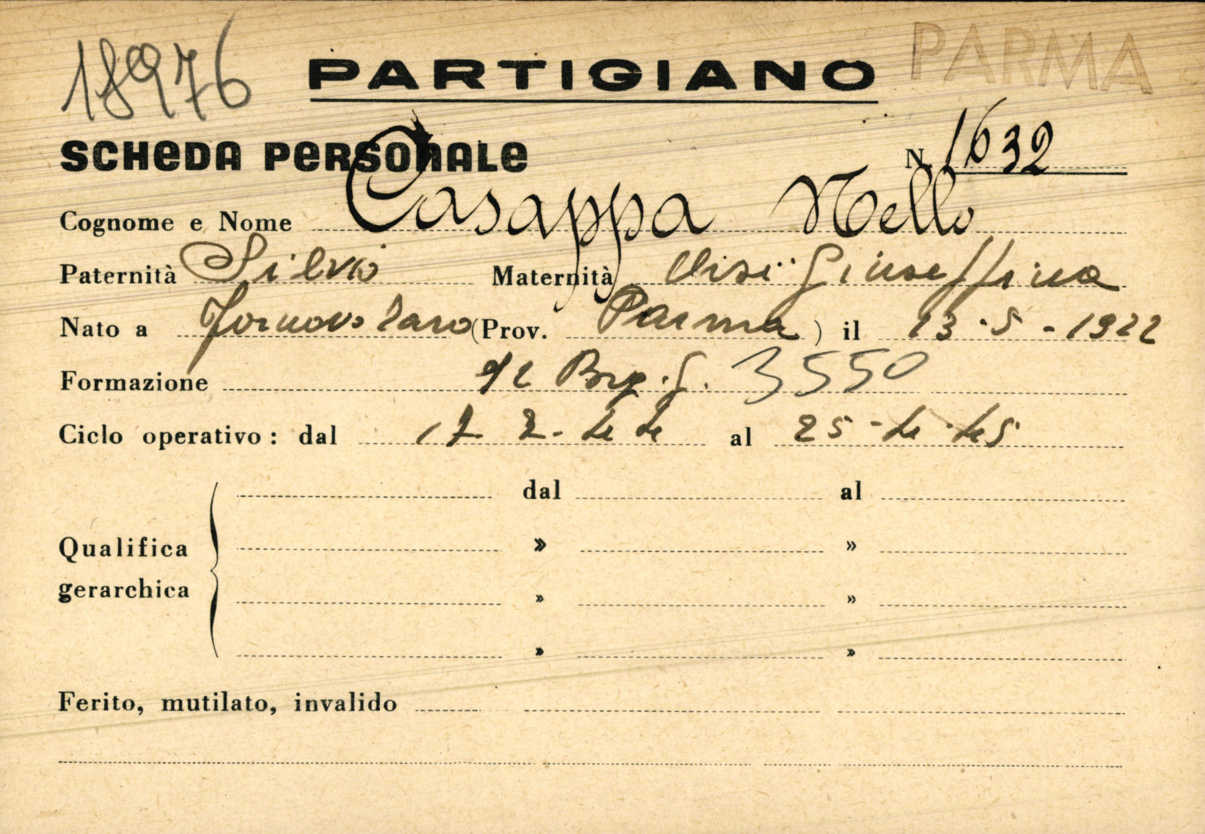 18976 PARTIGIANO PARMA
SCHEDA PERSONALE N. 1632
Cognome e Nome Casappa Nello
Paternità Silvio Maternità Giuseffina
Nato a Fornovo Taro (Prov. Parma) il 13-5-1922
Formazione 12 Brg. G. 3550
Ciclo operativo: dal 2-44 al 25-4-45
dal al
Qualifica » »
gerarchica » »
» »
Ferito, mutilato, invalido